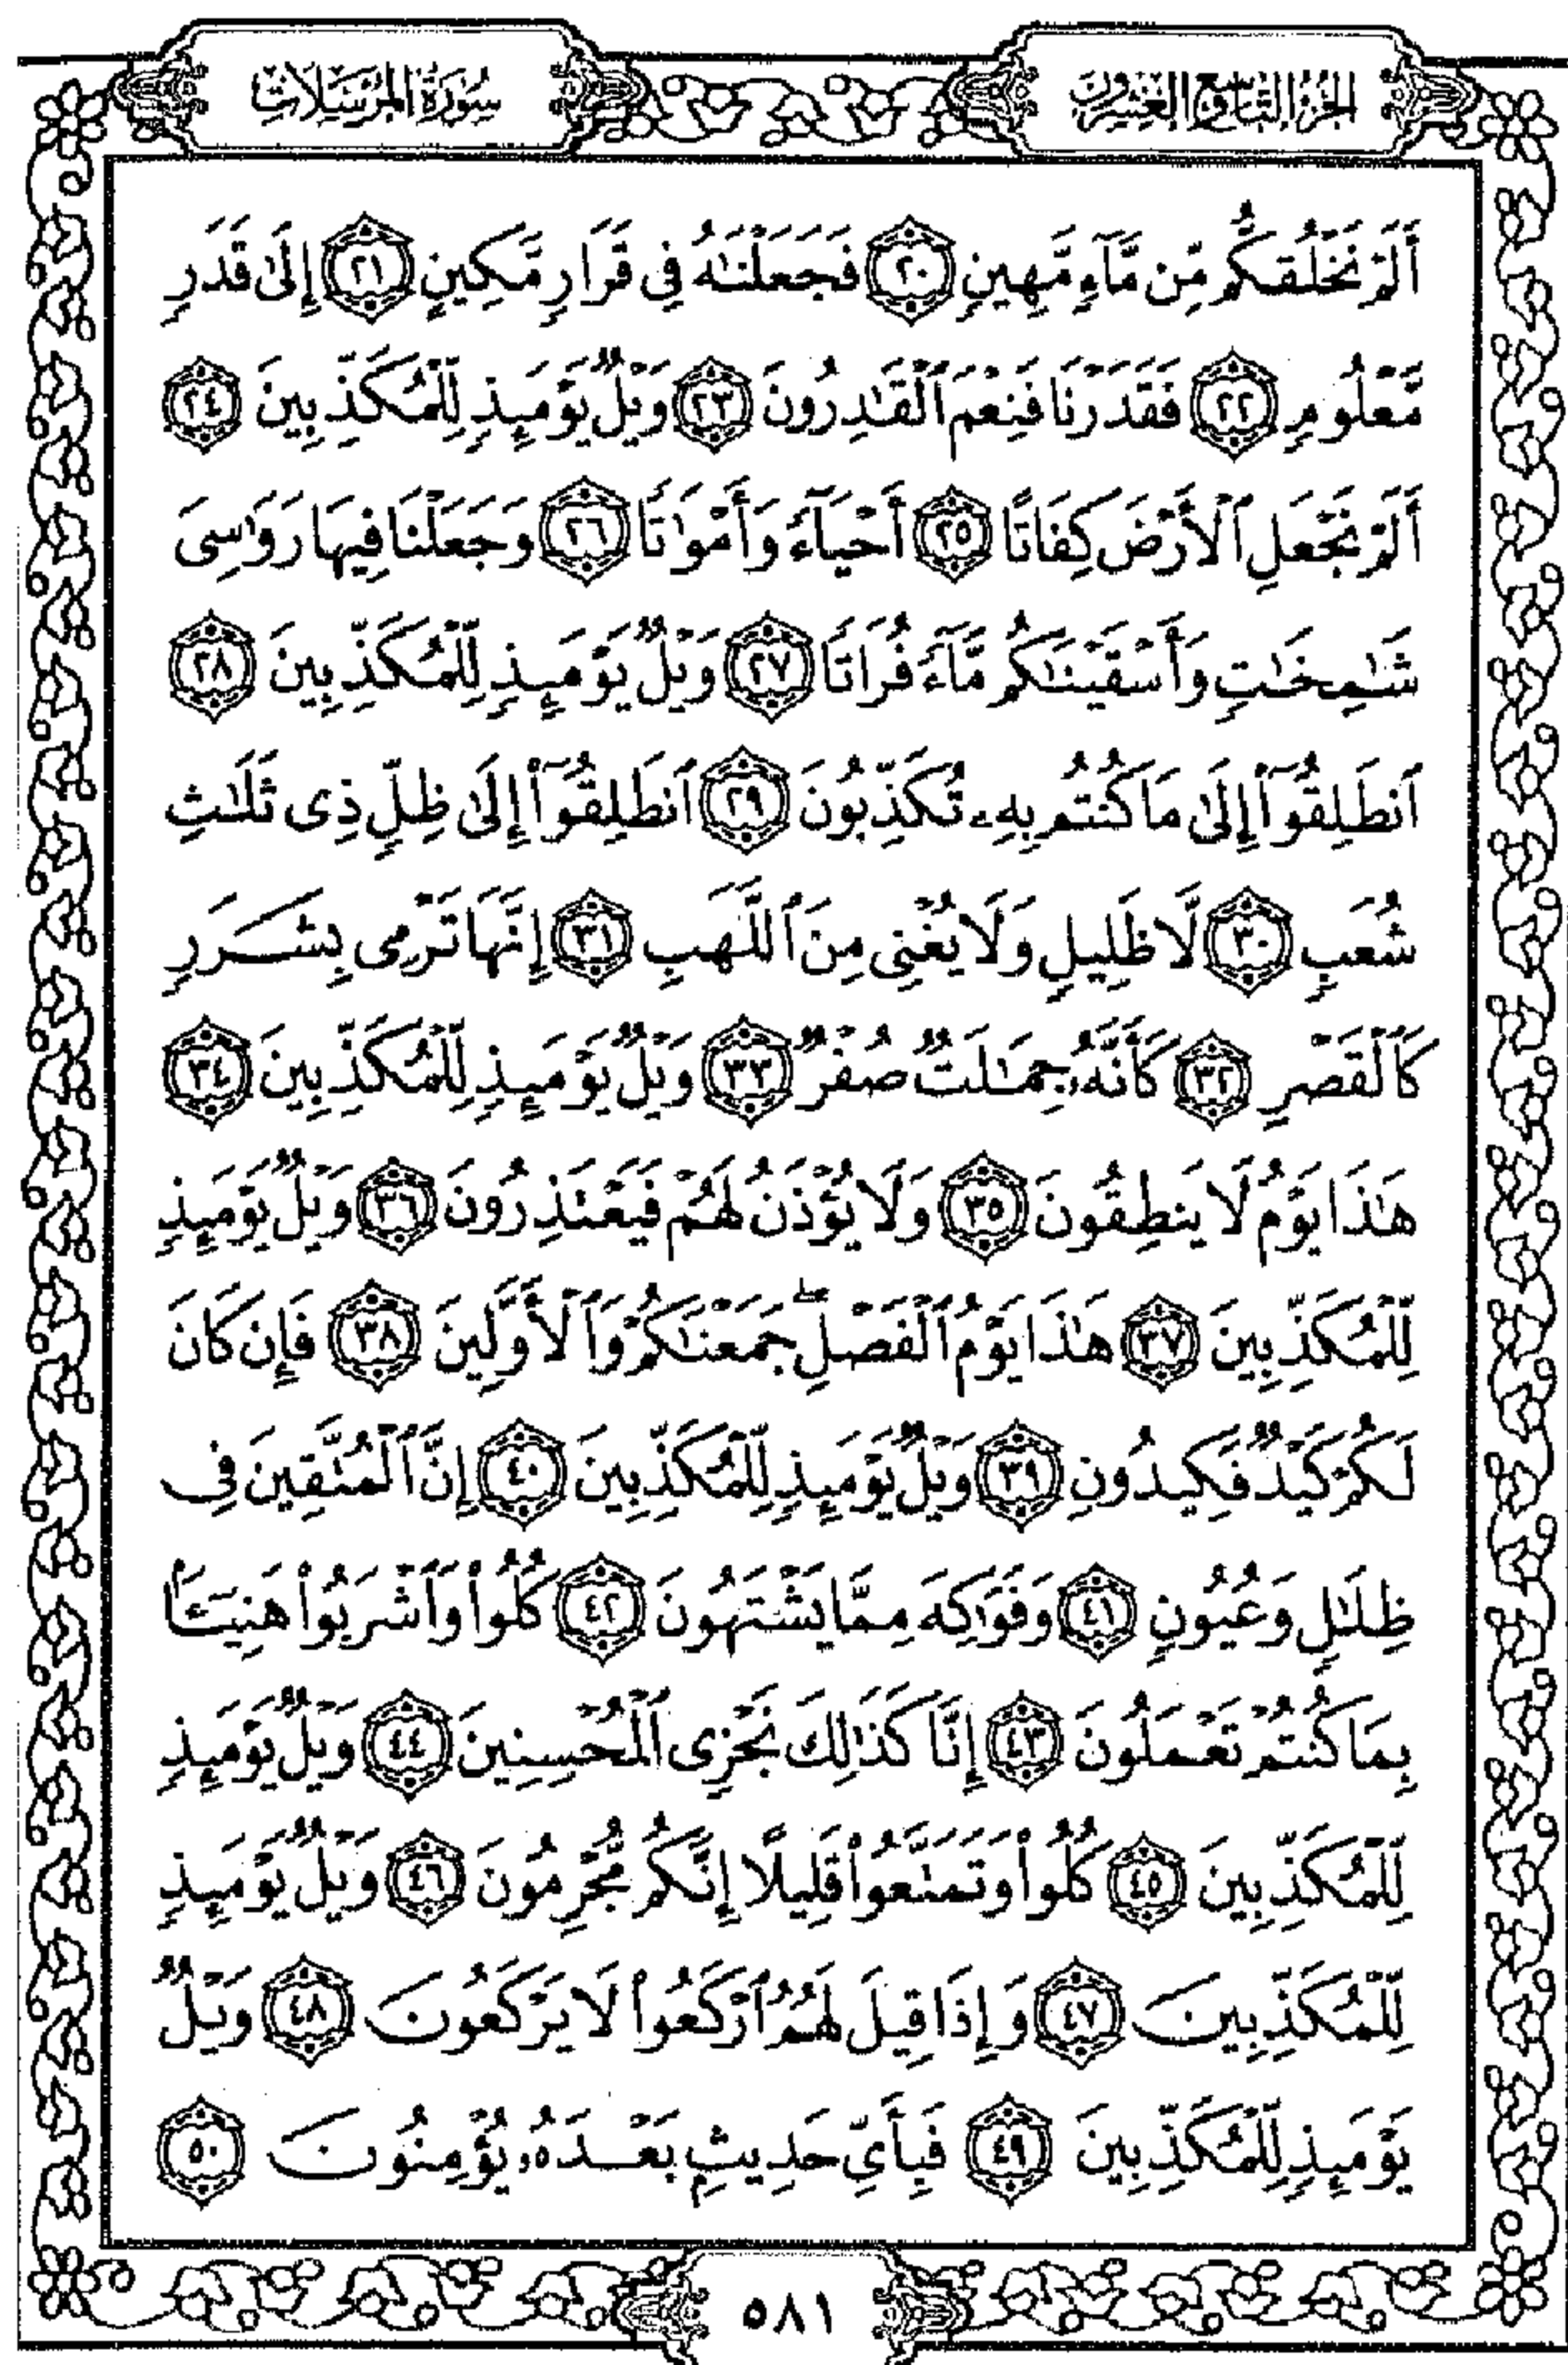 الجزء التاسع والعشرون
سورة المرسلات
أَلَمْ نَخْلُقكُّم مِّن مَّآءٍ مَّهِينٍ ٢٠ فَجَعَلْنَٰهُ فِي قَرَارٍ مَّكِينٍ ٢١ إِلَىٰ قَدَرٍ
مَّعْلُومٍ ٢٢ فَقَدَرْنَا فَنِعْمَ ٱلْقَٰدِرُونَ ٢٣ وَيْلٌ يَوْمَئِذٍ لِّلْمُكَذِّبِينَ ٢٤
أَلَمْ نَجْعَلِ ٱلْأَرْضَ كِفَاتًا ٢٥ أَحْيَآءً وَأَمْوَٰتًا ٢٦ وَجَعَلْنَا فِيهَا رَوَٰسِىَ
شَٰمِخَٰتٍ وَأَسْقَيْنَٰكُم مَّآءً فُرَاتًا ٢٧ وَيْلٌ يَوْمَئِذٍ لِّلْمُكَذِّبِينَ ٢٨
ٱنطَلِقُوٓا۟ إِلَىٰ مَا كُنتُم بِهِۦ تُكَذِّبُونَ ٢٩ ٱنطَلِقُوٓا۟ إِلَىٰ ظِلٍّ ذِى ثَلَٰثِ
شُعَبٍ ٣٠ لَّا ظَلِيلٍ وَلَا يُغْنِى مِنَ ٱللَّهَبِ ٣١ إِنَّهَا تَرْمِى بِشَرَرٍ
كَٱلْقَصْرِ ٣٢ كَأَنَّهُۥ جِمَٰلَتٌ صُفْرٌ ٣٣ وَيْلٌ يَوْمَئِذٍ لِّلْمُكَذِّبِينَ ٣٤
هَٰذَا يَوْمُ لَا يَنطِقُونَ ٣٥ وَلَا يُؤْذَنُ لَهُمْ فَيَعْتَذِرُونَ ٣٦ وَيْلٌ يَوْمَئِذٍ
لِّلْمُكَذِّبِينَ ٣٧ هَٰذَا يَوْمُ ٱلْفَصْلِ ۖ جَمَعْنَٰكُمْ وَٱلْأَوَّلِينَ ٣٨ فَإِن كَانَ
لَكُمْ كَيْدٌ فَكِيدُونِ ٣٩ وَيْلٌ يَوْمَئِذٍ لِّلْمُكَذِّبِينَ ٤٠ إِنَّ ٱلْمُتَّقِينَ فِى
ظِلَٰلٍ وَعُيُونٍ ٤١ وَفَوَٰكِهَ مِمَّا يَشْتَهُونَ ٤٢ كُلُوا۟ وَٱشْرَبُوا۟ هَنِيٓـًٔۢا
بِمَا كُنتُمْ تَعْمَلُونَ ٤٣ إِنَّا كَذَٰلِكَ نَجْزِى ٱلْمُحْسِنِينَ ٤٤ وَيْلٌ يَوْمَئِذٍ
لِّلْمُكَذِّبِينَ ٤٥ كُلُوا۟ وَتَمَتَّعُوا۟ قَلِيلًا إِنَّكُم مُّجْرِمُونَ ٤٦ وَيْلٌ يَوْمَئِذٍ
لِّلْمُكَذِّبِينَ ٤٧ وَإِذَا قِيلَ لَهُمُ ٱرْكَعُوا۟ لَا يَرْكَعُونَ ٤٨ وَيْلٌ
يَوْمَئِذٍ لِّلْمُكَذِّبِينَ ٤٩ فَبِأَىِّ حَدِيثٍۭ بَعْدَهُۥ يُؤْمِنُونَ ٥٠
٥٨١